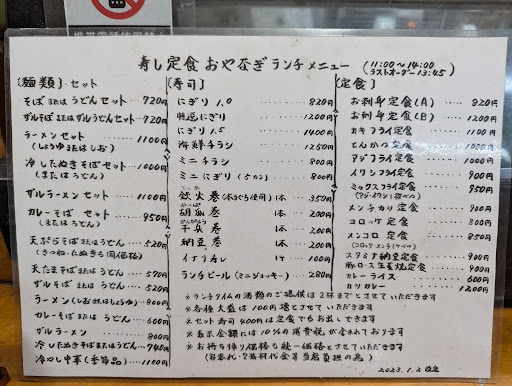 携帯電話使用禁止
寿し定食 おやなぎ ランチメニュー
(11:00~14:00
ラストオーダー13:45)
〔麺類〕・セット
そばまたはうどんセット・・・720円
ザルそばまたはザルうどんセット・・720円
ラーメンセット・・・・・1100円
(しょうゆまたはしお)
冷したぬきそばセット・・・1000円
(またはうどん)
ザルラーメンセット・・・1100円
カレーそばセット・・・950円
(またはうどん)
天ぷらそばまたはうどん・・・520円
(きつね・たぬきも同価格)
天たまそばまたはうどん・・・570円
ザルそばまたはうどん・・・520円
ラーメン(しおまたはしょうゆ)・・800円
カレーそばまたはうどん・・・600円
ザルラーメン・・・・・800円
冷したぬきそばまたはうどん・・740円
冷やし中華(季節品)・・・1100円
〔寿司〕
にぎり 1.0・・・・820円
特選にぎり・・・・1200円
にぎり 1.5・・・・1400円
海鮮チラシ・・・・1250円
ミニチラシ・・・・800円
ミニにぎり(5カン)・・・800円
鉄火巻(本まぐろ使用) 1本・・・350円
胡瓜巻 1本・・200円
干瓢巻 1本・・200円
納豆巻 1本・・200円
イナリすし 1ケ・・・100円
ランチビール(ミニジョッキー)・・・280円
〔定食〕
お刺身定食(A)・・・・820円
お刺身定食(B)・・・・1200円
カキフライ定食・・・1100円
とんかつ定食・・・1000円
アジフライ定食・・・1000円
イワシフライ定食・・・900円
ミックスフライ定食・・・950円
(アジ・イワシ1枚づつ)
メンチカツ定食・・・900円
コロッケ定食・・・800円
メンコロ定食・・・850円
(コロッケ メンチ1ケづつ)
スタミナ納豆定食・・・900円
豚ロース生姜焼定食・・・900円
カレーライス・・・・600円
カツカレー・・・・1200円
※ランチタイムの酒類のご提供は2杯までとさせていただきます
※各種大盛は100円増とさせていただきます
※セット寿司400円は定食でもお出しできます
※表示金額には10%の消費税が含まれております
※お持ち帰り価格も統一価格とさせていただきます
2023.1.2改定